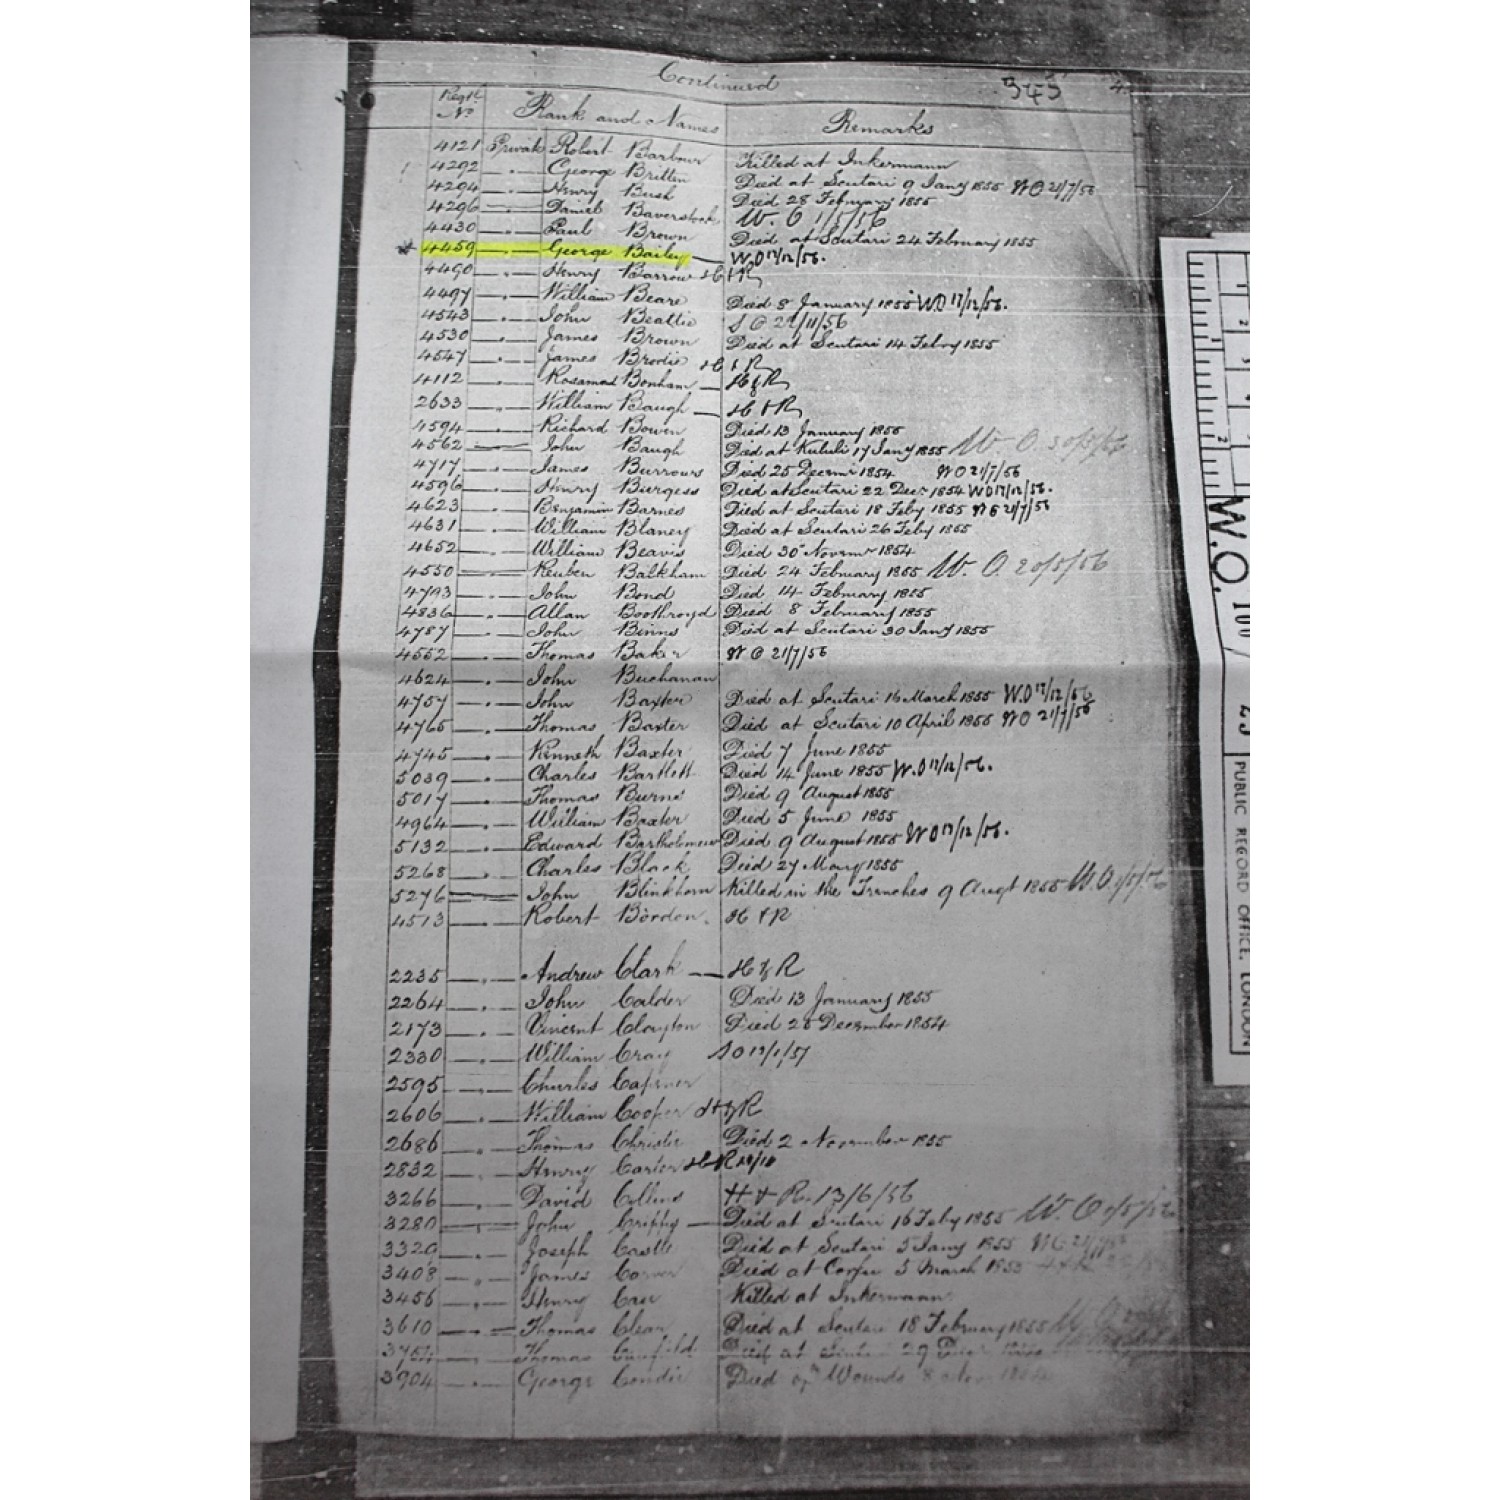 Continued
345
4.
Regtl No Rank and Names Remarks
4121 Private Robert Barbour Killed at Inkermann
4292 —"— George Britten Died at Scutari 9 Jany 1855 WO 21/7/56
4294 —"— Henry Bush Died 28 February 1855
4296 —"— Daniel Baverstock W.O 1/5/56
4430 —"— Paul Brown Died at Scutari 24 February 1855
4459 —"— George Bailey — W.O 17/12/56.
4490 —"— Henry Barrow H & R
4497 —"— William Beare Died 8 January 1855 WO 17/12/56.
4543 —"— John Beattie S O 22/11/56
4530 —"— James Brown Died at Scutari 14 Febry 1855
4547 —"— James Brodie H & R
4112 —"— Rosamond Bonham — H & R
2633 —"— William Baugh — H & R
4594 —"— Richard Bowen Died 13 January 1855
4562 —"— John Baugh Died at Kululi 17 Jany 1855 W.O.
4717 —"— James Burrows Died 25 Decemr 1854 WO 21/7/56
4596 —"— Henry Burgess Died at Scutari 22 Decr 1854 WO 17/12/56.
4623 —"— Benjamin Barnes Died at Scutari 18 Feby 1855 WO 21/7/56
4631 —"— William Blaney Died at Scutari 26 Feby 1855
4652 —"— William Beavis Died 30 Novemr 1854
4550 —"— Reuben Balkham Died 24 February 1855 W.O. 20/5/56
4793 —"— John Bond Died 14 February 1855
4836 —"— Allan Boothroyd Died 8 February 1855
4787 —"— John Binns Died at Scutari 30 Jany 1855
4552 —"— Thomas Baker W O 21/7/56
4624 —"— John Buchanan
4757 —"— John Baxter Died at Scutari 16 March 1855 W.O 17/12/56
4765 —"— Thomas Baxter Died at Scutari 10 April 1855 WO 21/7/56
4745 —"— Kenneth Baxter Died 7 June 1855
5039 —"— Charles Bartlett Died 14 June 1855 W.O 17/12/56.
5017 —"— Thomas Burns Died 9 August 1855
4964 —"— William Baxter Died 5 June 1855
5132 —"— Edward Bartholomew Died 9 August 1855 WO 17/12/56.
5268 —"— Charles Black Died 27 May 1855
5276 —"— John Blinkhorn Killed in the Trenches 9 Augt 1855 W.O 1/5/56
4513 —"— Robert Bordon. H & R
2235 —"— Andrew Clark — H & R
2264 —"— John Calder Died 13 January 1855
2173 —"— Vincent Clayton Died 25 December 1854
2330 —"— William Cray SO 13/1/57
2595 —"— Charles
2606 —"— William Cooper H & R
2686 —"— Thomas Christie Died 2 November 1855
2832 —"— Henry Carter H & R
3266 —"— David Collins H & R. 13/6/56
3280 —"— John Crippy — Died at Scutari 16 Feby 1855 W.O 1/5/56
3329 —"— Joseph Castle Died at Scutari 5 Jany 1855 WO 21/7/56
3408 —"— James Died at Corfu 5 March 1855
3456 —"— Henry Killed at Inkermann
3610 —"— Thomas Clear Died at Scutari 18 February 1855 W.O
—"— Thomas Died at 29
3904 —"— George Condie Died of Wounds 8
W.O. 100/
PUBLIC RECORD OFFICE, LONDON